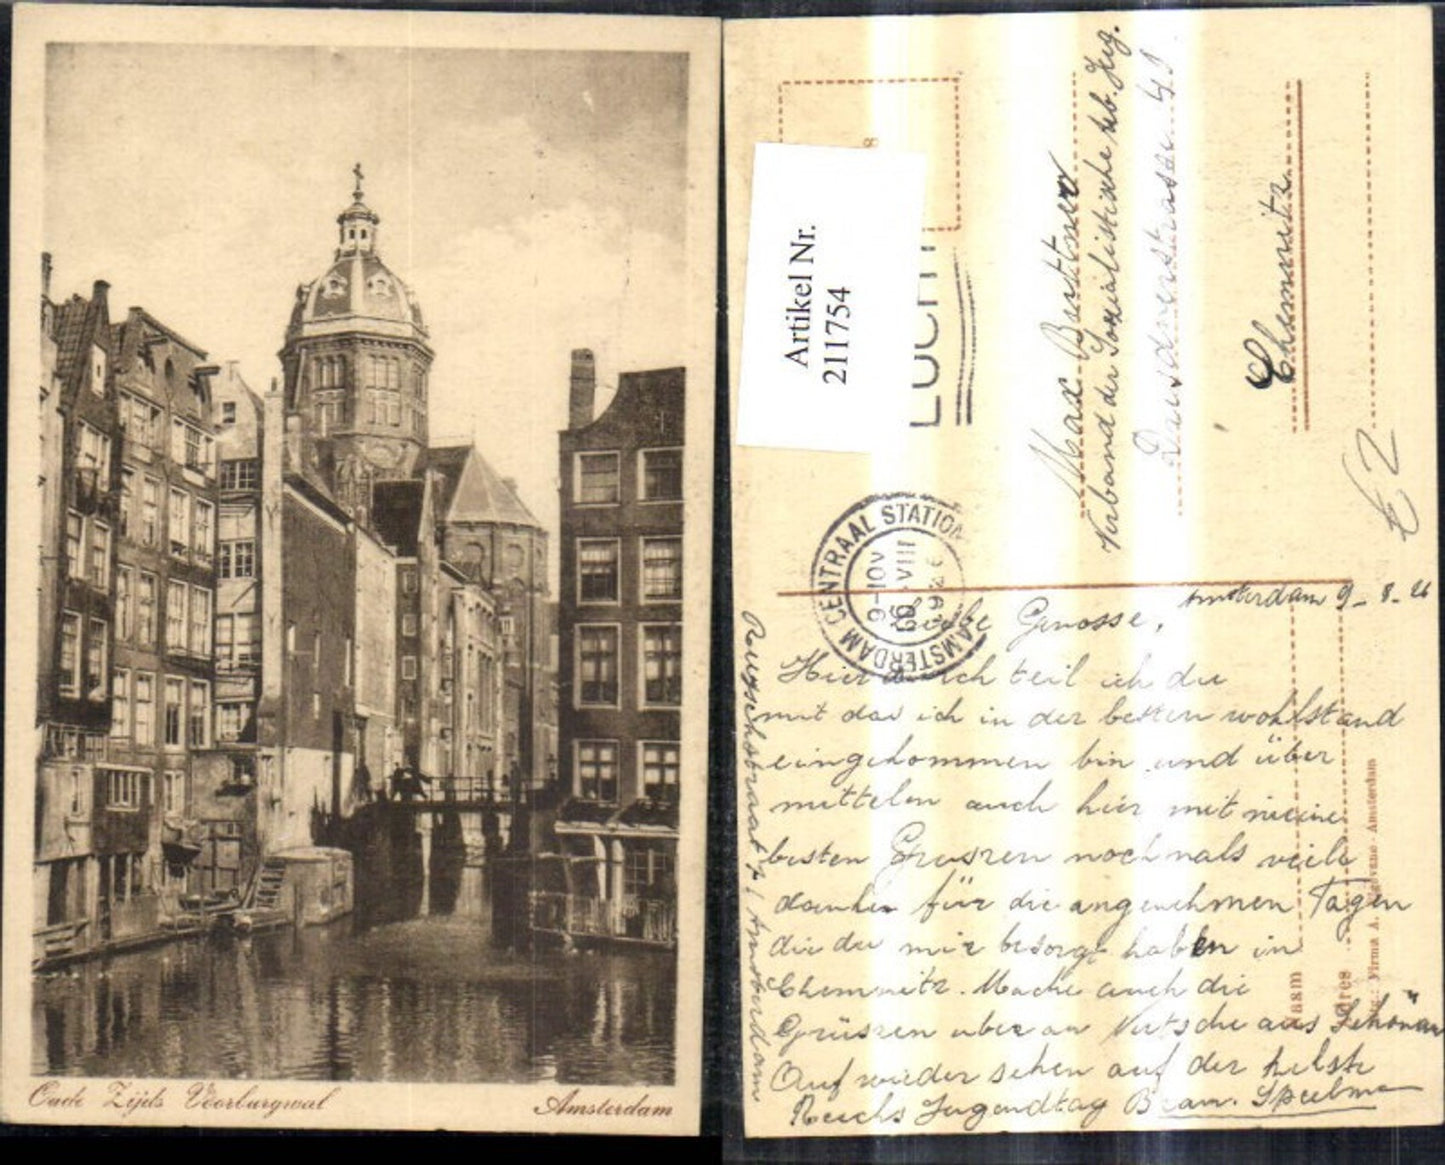 Oude Zijds Voorburgwal
Amsterdam
Artikel Nr.
211754
LUCHT
AMSTERDAM CENTRAAL STATION
9-10V
10 VIII
1926
Max Büttner
Verband der Sozialistische
Dresdnerstrasse 41
Chemnitz
€ 2
Amsterdam 9-8-26
Liebe Genosse,
Hier durch teil ich du
mit das ich in der besten wohlstand
eingekommen bin und über
mittelen auch hier mit meine
besten Grussen nochmals viele
danken für die angenehmen Tagen
die du mir besorgt haben in
Chemnitz. Mache auch die
Grüssen uber an aus
Auf wieder sehen auf der
Reichs Jugendtag Bram. Speelman
Amsterdam
Naam
Adres
Firma A. Amsterdam